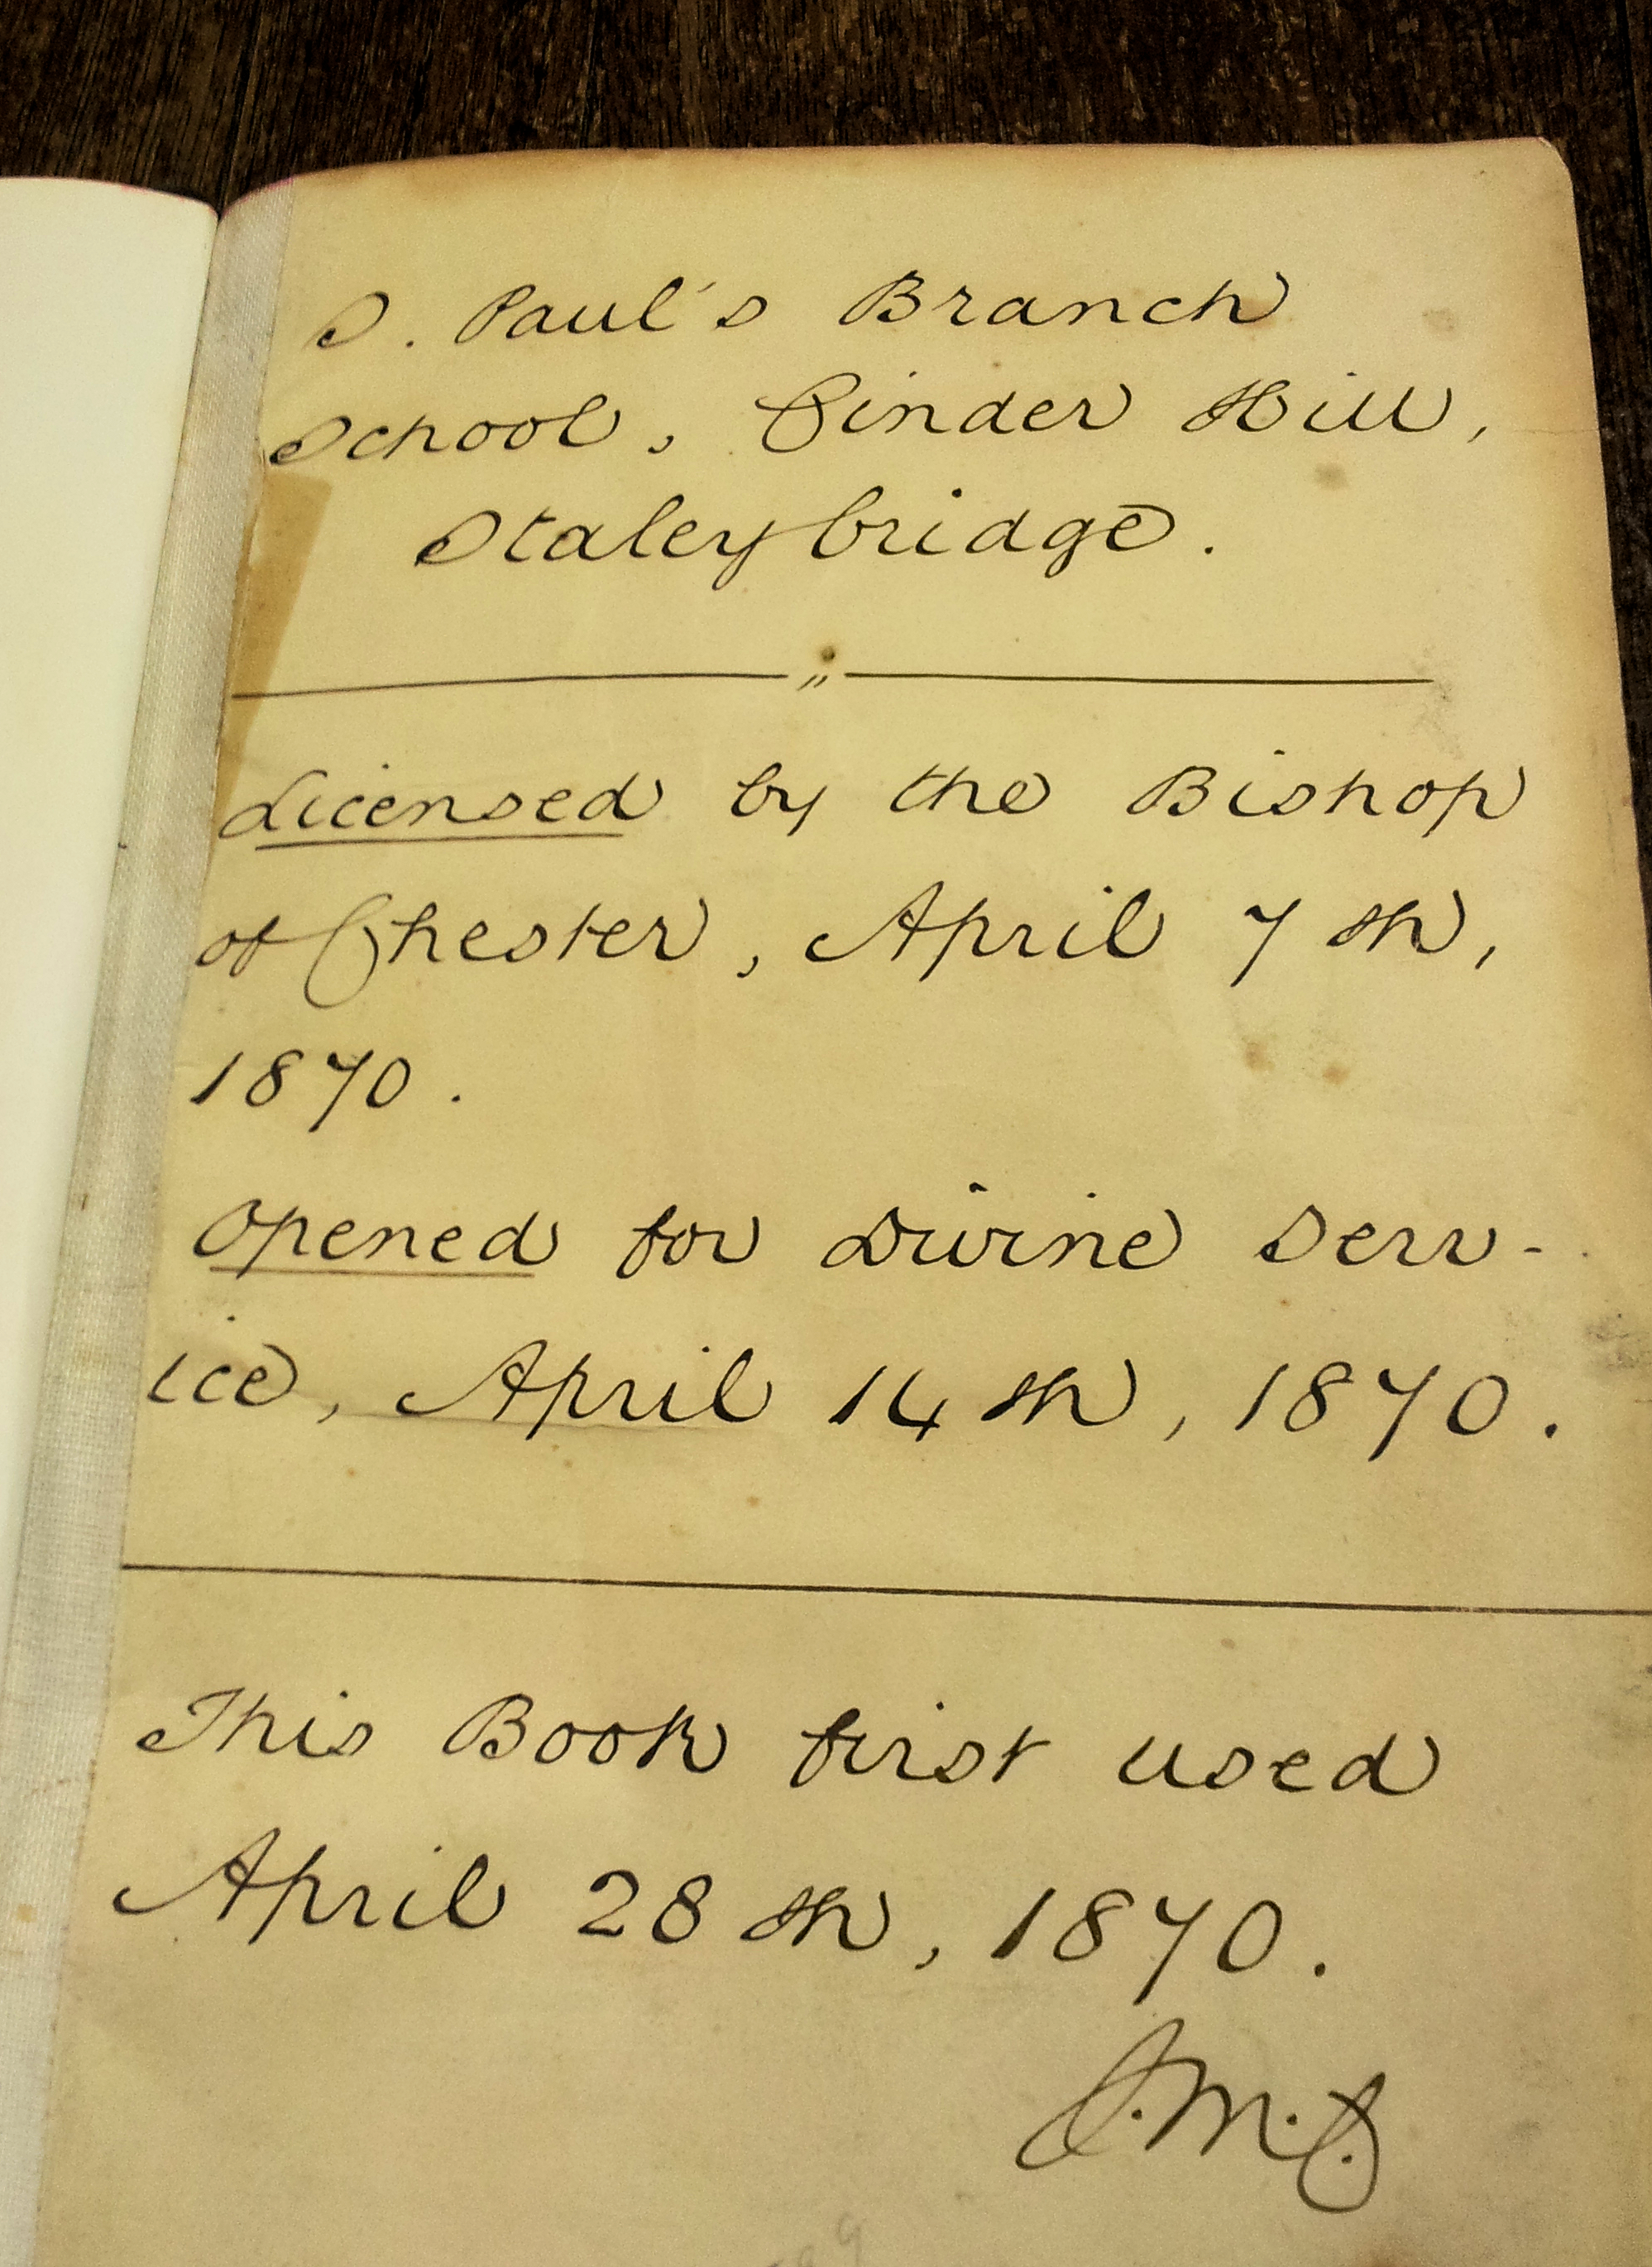 S. Paul's Branch
School, Cinder Hill,
Staleybridge.
Licensed by the Bishop
of Chester, April 7th,
1870.
Opened for Divine Serv-
ice, April 14th, 1870.
This Book first used
April 28th, 1870.